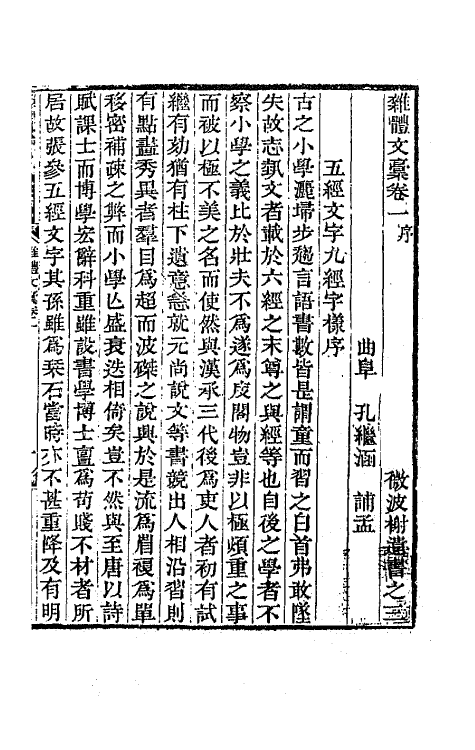 雜體文稾卷一序　微波榭遺書之三
曲阜　孔繼涵　誧孟
五經文字九經字樣序
古之小學灑埽步趨言語書數皆是謂童而習之白首弗敢墜
失故志埶文者載於六經之末尊之與經等也自後之學者不
察小學之義比於壯夫不爲遂爲庋閣物豈非以極煩重之事
而被以極不美之名而使然與漢承三代後爲吏人者初有試
繼有劾猶有柱下遺意就元尚說文等書競出人相沿習則
有點畫秀異者羣目爲超而波磔之說興於是流爲眉禝爲單
移密補疎之弊而小學亾盛衰迭相倚矣豈不然與至唐以詩
賦課士而博學宏辭科重雖設書學博士亶爲苟賤不材者所
居故張參五經文字其孫雖爲琹石當時亦不甚重降及有明